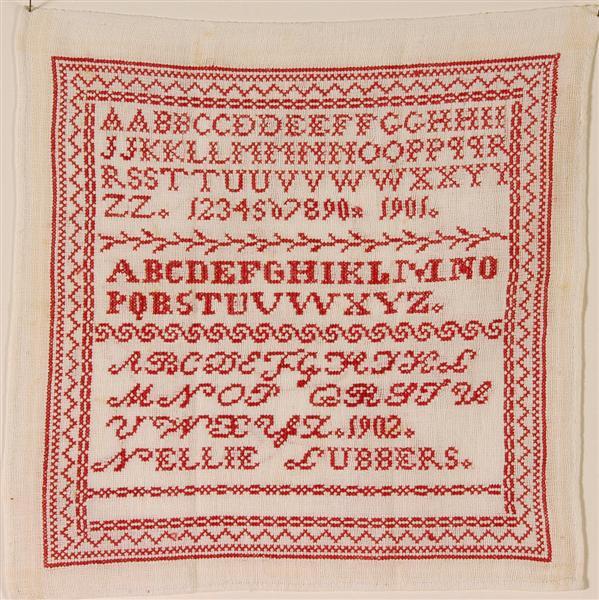 AABBCCDDEEFFGGHHII
JJKKLLMMNNOOPPQQR
RSSTTUUVVWWXXYY
ZZ. 1234567890. 1901.
ABCDEFGHIKLMNO
PQRSTUVWXYZ.
ABCDEFGHIKL
MNOP QRSTU
VWXYZ. 1902.
NELLIE LUBBERS.